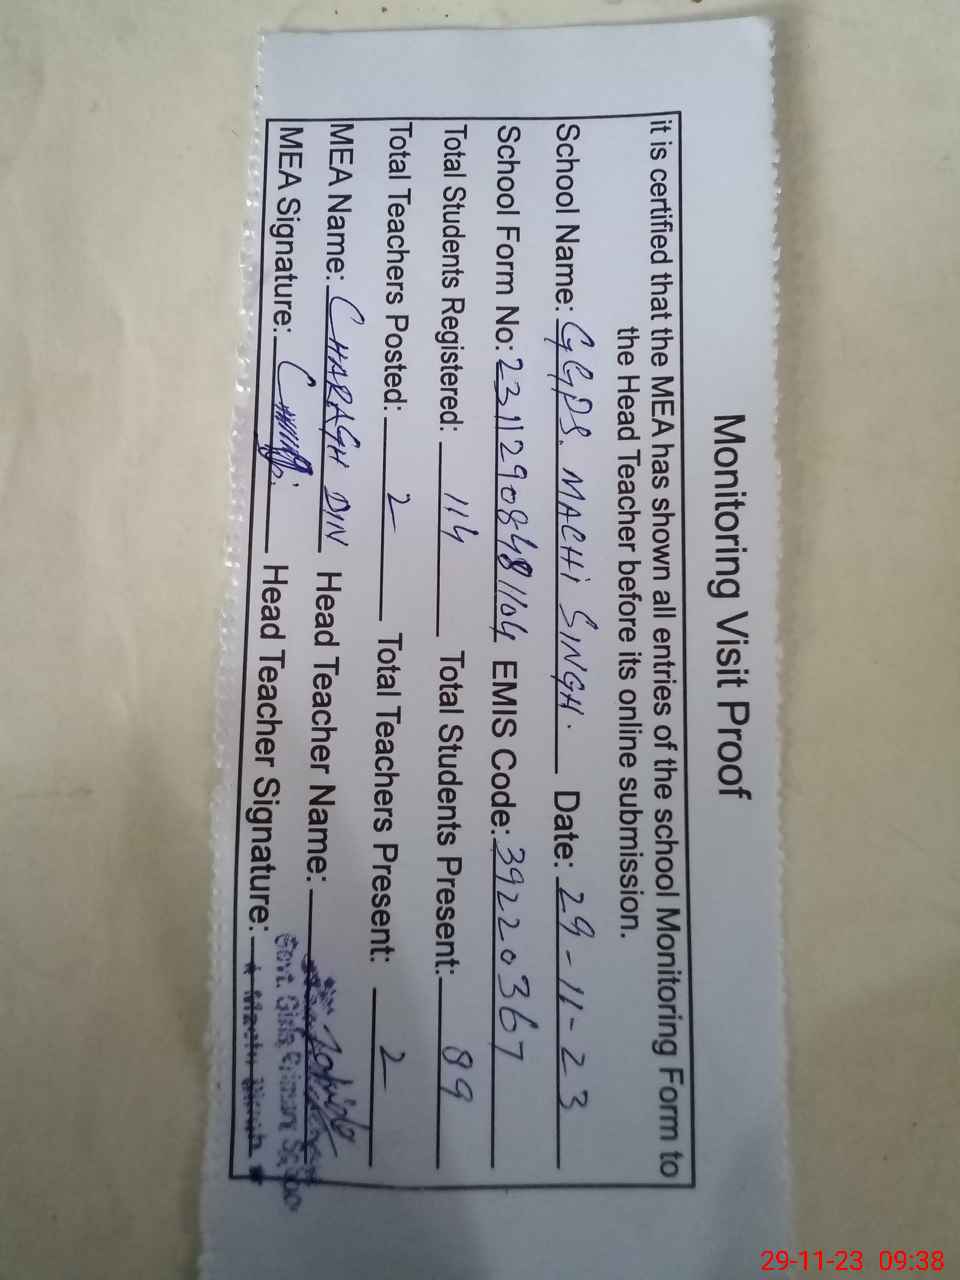 Monitoring Visit Proof
it is certified that the MEA has shown all entries of the school Monitoring Form to
the Head Teacher before its online submission.
School Name: GGPS. MACHI SINGH. Date: 29-11-23
School Form No: 23112908481104 EMIS Code: 39220367
Total Students Registered: 114 Total Students Present: 89
Total Teachers Posted: 2 Total Teachers Present: 2
MEA Name: CHARAGH DIN Head Teacher Name:
MEA Signature: Head Teacher Signature:
Govt. Girls Primary School
29-11-23 09:38